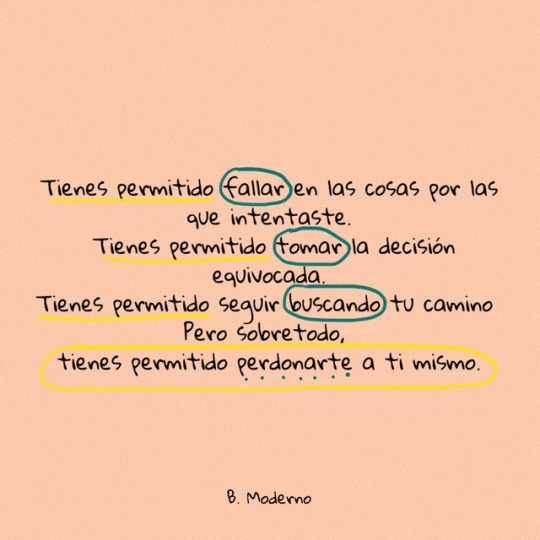 Tienes permitido fallar en las cosas por las
que intentaste.
Tienes permitido tomar la decisión
equivocada.
Tienes permitido seguir buscando tu camino
Pero sobretodo,
tienes permitido perdonarte a ti mismo.
B. Moderno